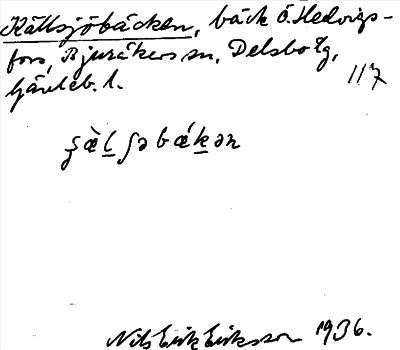 Källsjöbäcken, bäck ö. Hedvigs-
fors, Bjuråkers sn, Delsbo tg,
Gävleb. l.
117
ʂæ̀l̲ʃəbǽk̲ən
Nils Erik Eriksson 1936.